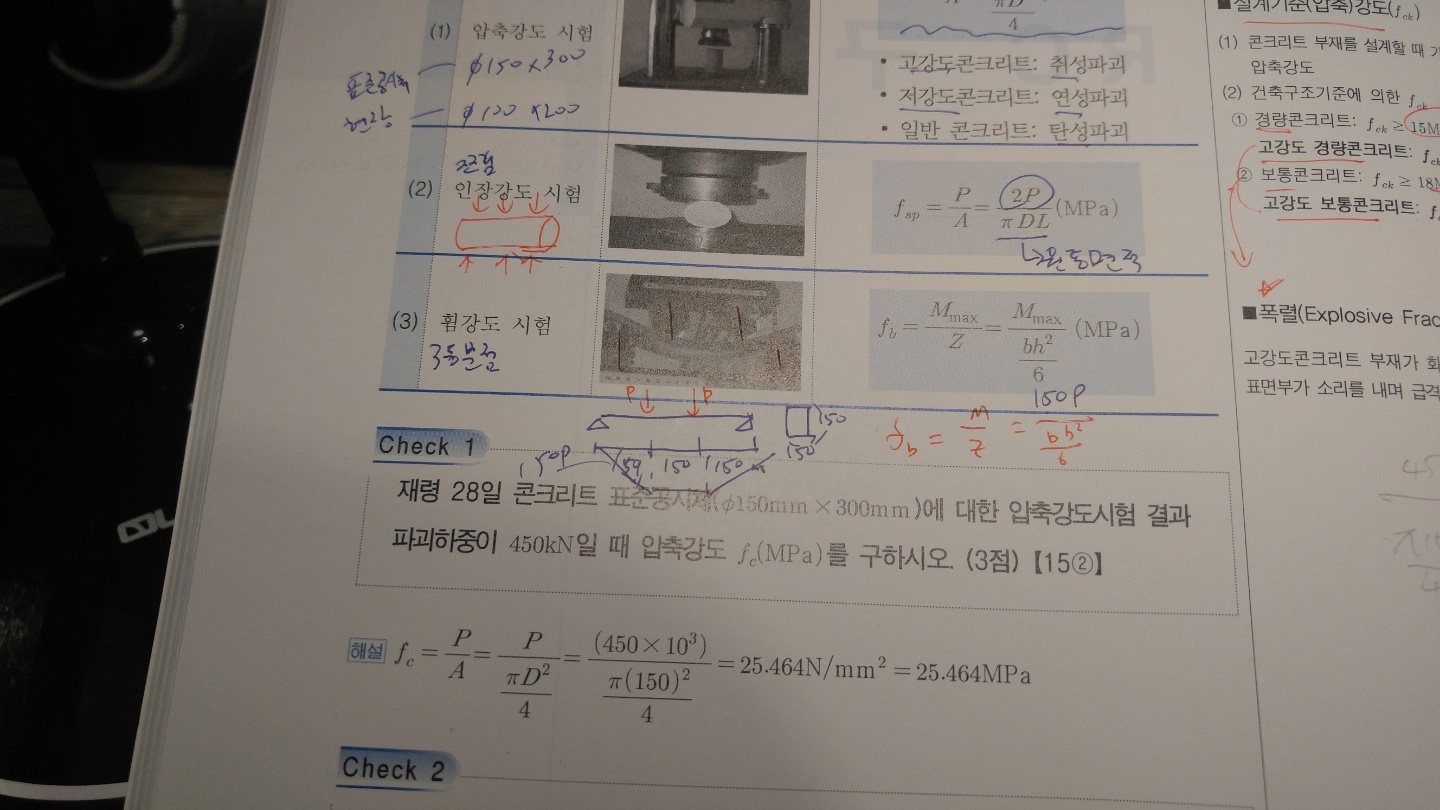 πD
4
(1) 압축강도 시험
φ150×300
현장
φ100×200
• 고강도콘크리트: 취성파괴
• 저강도콘크리트: 연성파괴
• 일반 콘크리트: 탄성파괴
(2) 인장강도 시험
f_sp = P/A = 2P/πDL (MPa)
(3) 휨강도 시험
3등분점
f_b = M_max/Z = M_max/(bh²/6) (MPa)
P P
150
150
150P
150 150
f_b = M/Z = 150P/(bh²/6)
Check 1
재령 28일 콘크리트 표준공시체(φ150mm×300mm)에 대한 압축강도시험 결과
파괴하중이 450kN일 때 압축강도 f_c(MPa)를 구하시오. (3점) 【15②】
해설 f_c = P/A = P/(πD²/4) = (450×10³)/(π(150)²/4) = 25.464N/mm² = 25.464MPa
Check 2
■설계기준(압축)강도(f_ck)
(1) 콘크리트 부재를 설계할 때
압축강도
(2) 건축구조기준에 의한 f_ck
① 경량콘크리트: f_ck ≥ 15M
고강도 경량콘크리트: f_ck
② 보통콘크리트: f_ck ≥ 18M
고강도 보통콘크리트: f
■폭렬(Explosive Frac
고강도콘크리트 부재가 화
표면부가 소리를 내며 급격